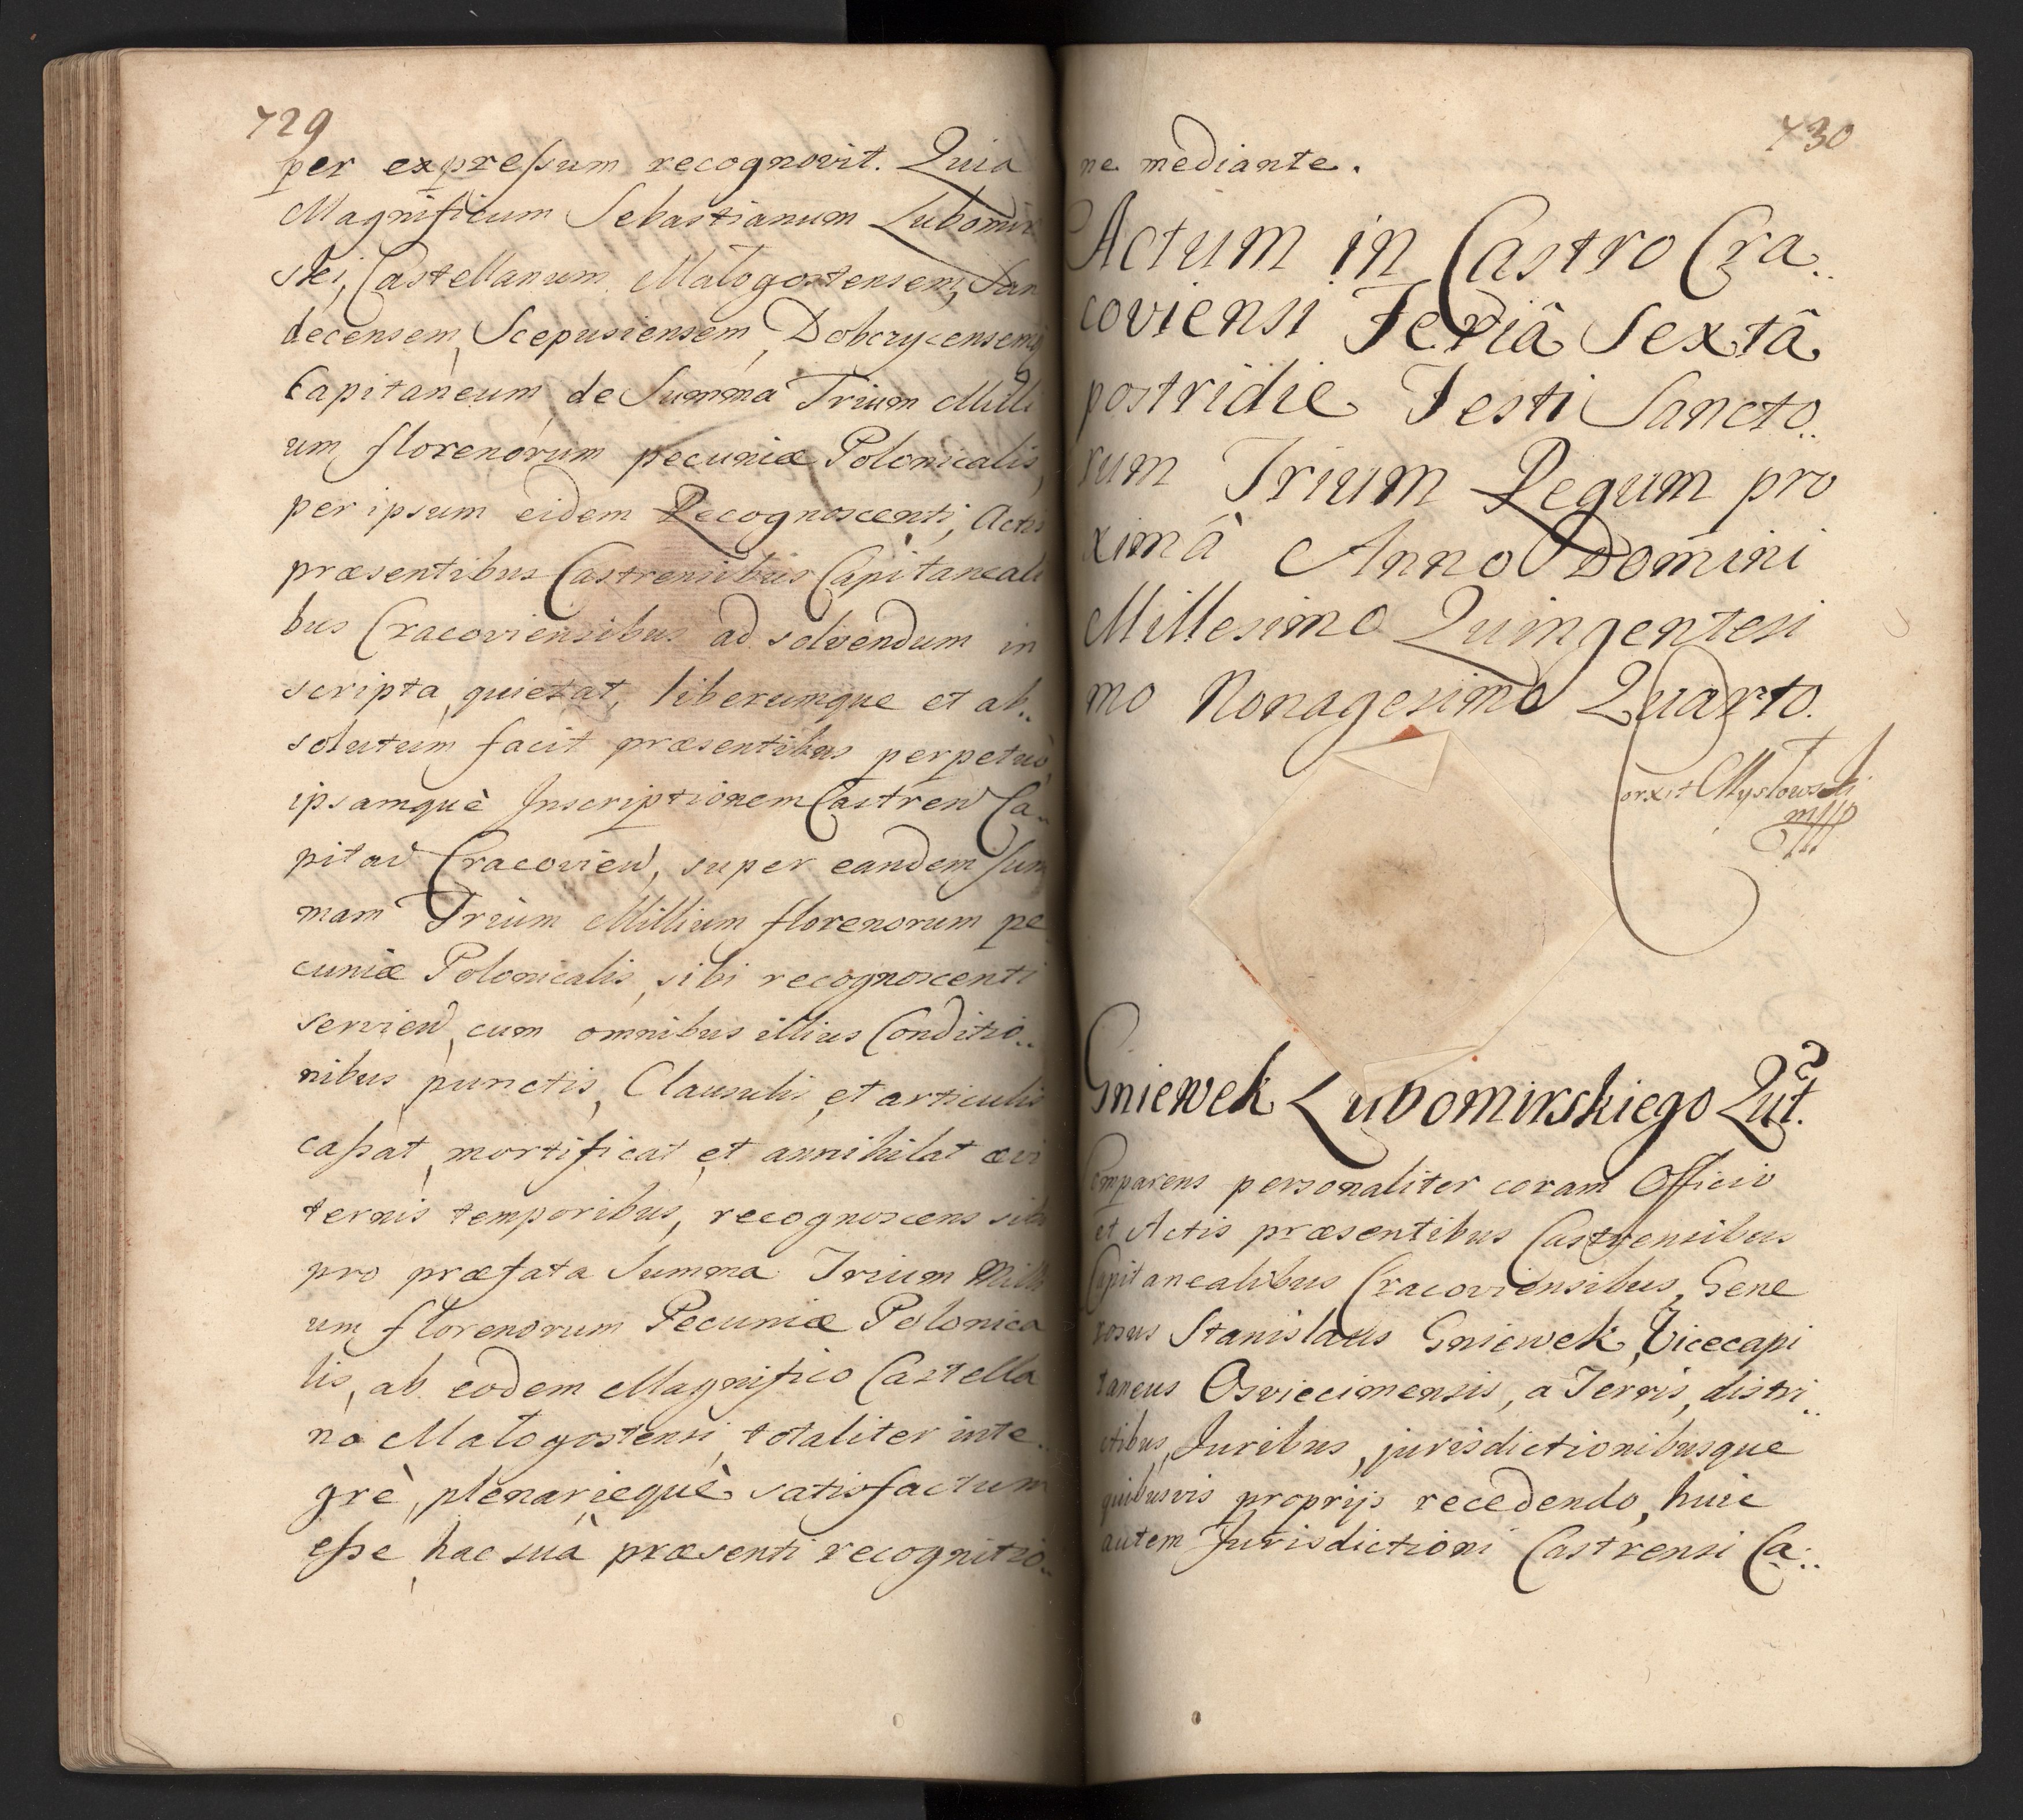 729
per expreſsum recognovit. Quia
Magnificum Sebastianum Lubomir
ski, Castellanum Małogostensem, San
decensem, Scepusiensem, Dobczycensemq
Capitaneum de Summa Trium Milli
um florenorum pecuniæ Polonicalis,
per ipsum eidem Recognoscenti, Actis
præsentibus Castrensibus Capitaneali
bus Cracoviensibus ad solvendum in
scripta, quietat, liberumque et ab..
solutum facit præsentibus perpetuò,
ipsamquè Inscriptionem Castren Ca..
pitan Cracovien, super eandem Sum
mam Trium Millium florenorum pe
cuniæ Polonicalis, sibi recognoscenti
servien, cum omnibus illius Conditio..
nibus punctis, Clausulis, et articulis
caſsat, mortificat et annihilat ævi
ternis temporibus, recognoscens sibi
pro præfata Summa Trium Milli
um florenorum Pecuniæ Polonica
lis, ab eodem Magnifico Castella
no Małogostensi, totaliter inte..
grè, plenariequè satisfactum
eſse, hac suà præsenti recognitio..
730
ne mediante.
Actum in Castro Cra..
coviensi Feriâ Sextâ
postridie Festi Sancto..
rum Trium Regum pro
ximâ Anno Domini
Millesimo Quingentesi
mo Nonagesimo Quarto.
Corxit Mysłowski
mpp
Gniewek Lubomirskiego Qut.
Comparens personaliter coram Officio
et Actis præsentibus Castrensibus
Capitanealibus Cracoviensibus, Gene
rosus Stanislaus Gniewek, Vicecapi
taneus Osviecimensis, a Terris, distri..
ctibus, Juribus, jurisdictionibusque
quibusvis proprijs recedendo, huic
autem Jurisdictioni Castrensi Ca..